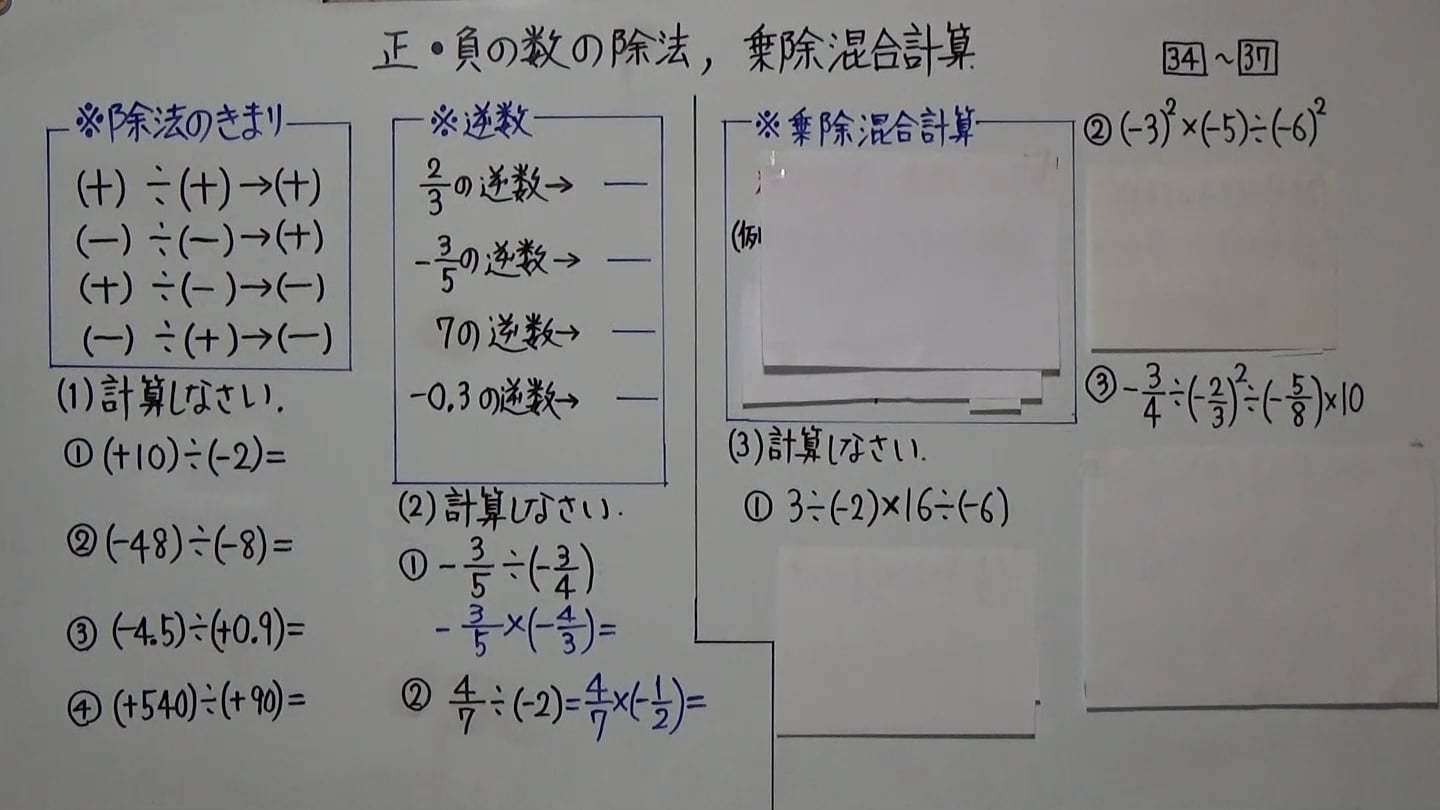 正・負の数の除法, 乗除混合計算
34 ~ 37
※除法のきまり
(+) ÷(+)→(+)
(−) ÷(−)→(+)
(+) ÷(−)→(−)
(−) ÷(+)→(−)
(1)計算しなさい.
①(+10)÷(-2)=
②(-48)÷(-8)=
③(-4.5)÷(+0.9)=
④(+540)÷(+90)=
※逆数
2/3の逆数→ —
-3/5の逆数→ —
7の逆数→ —
-0.3の逆数→ —
(2)計算しなさい.
① -3/5÷(-3/4)
-3/5×(-4/3)=
② 4/7÷(-2)=4/7×(-1/2)=
※乗除混合計算
(例
(3)計算しなさい.
① 3÷(-2)×16÷(-6)
②(-3)²×(-5)÷(-6)²
③-3/4÷(-2/3)²÷(-5/8)×10